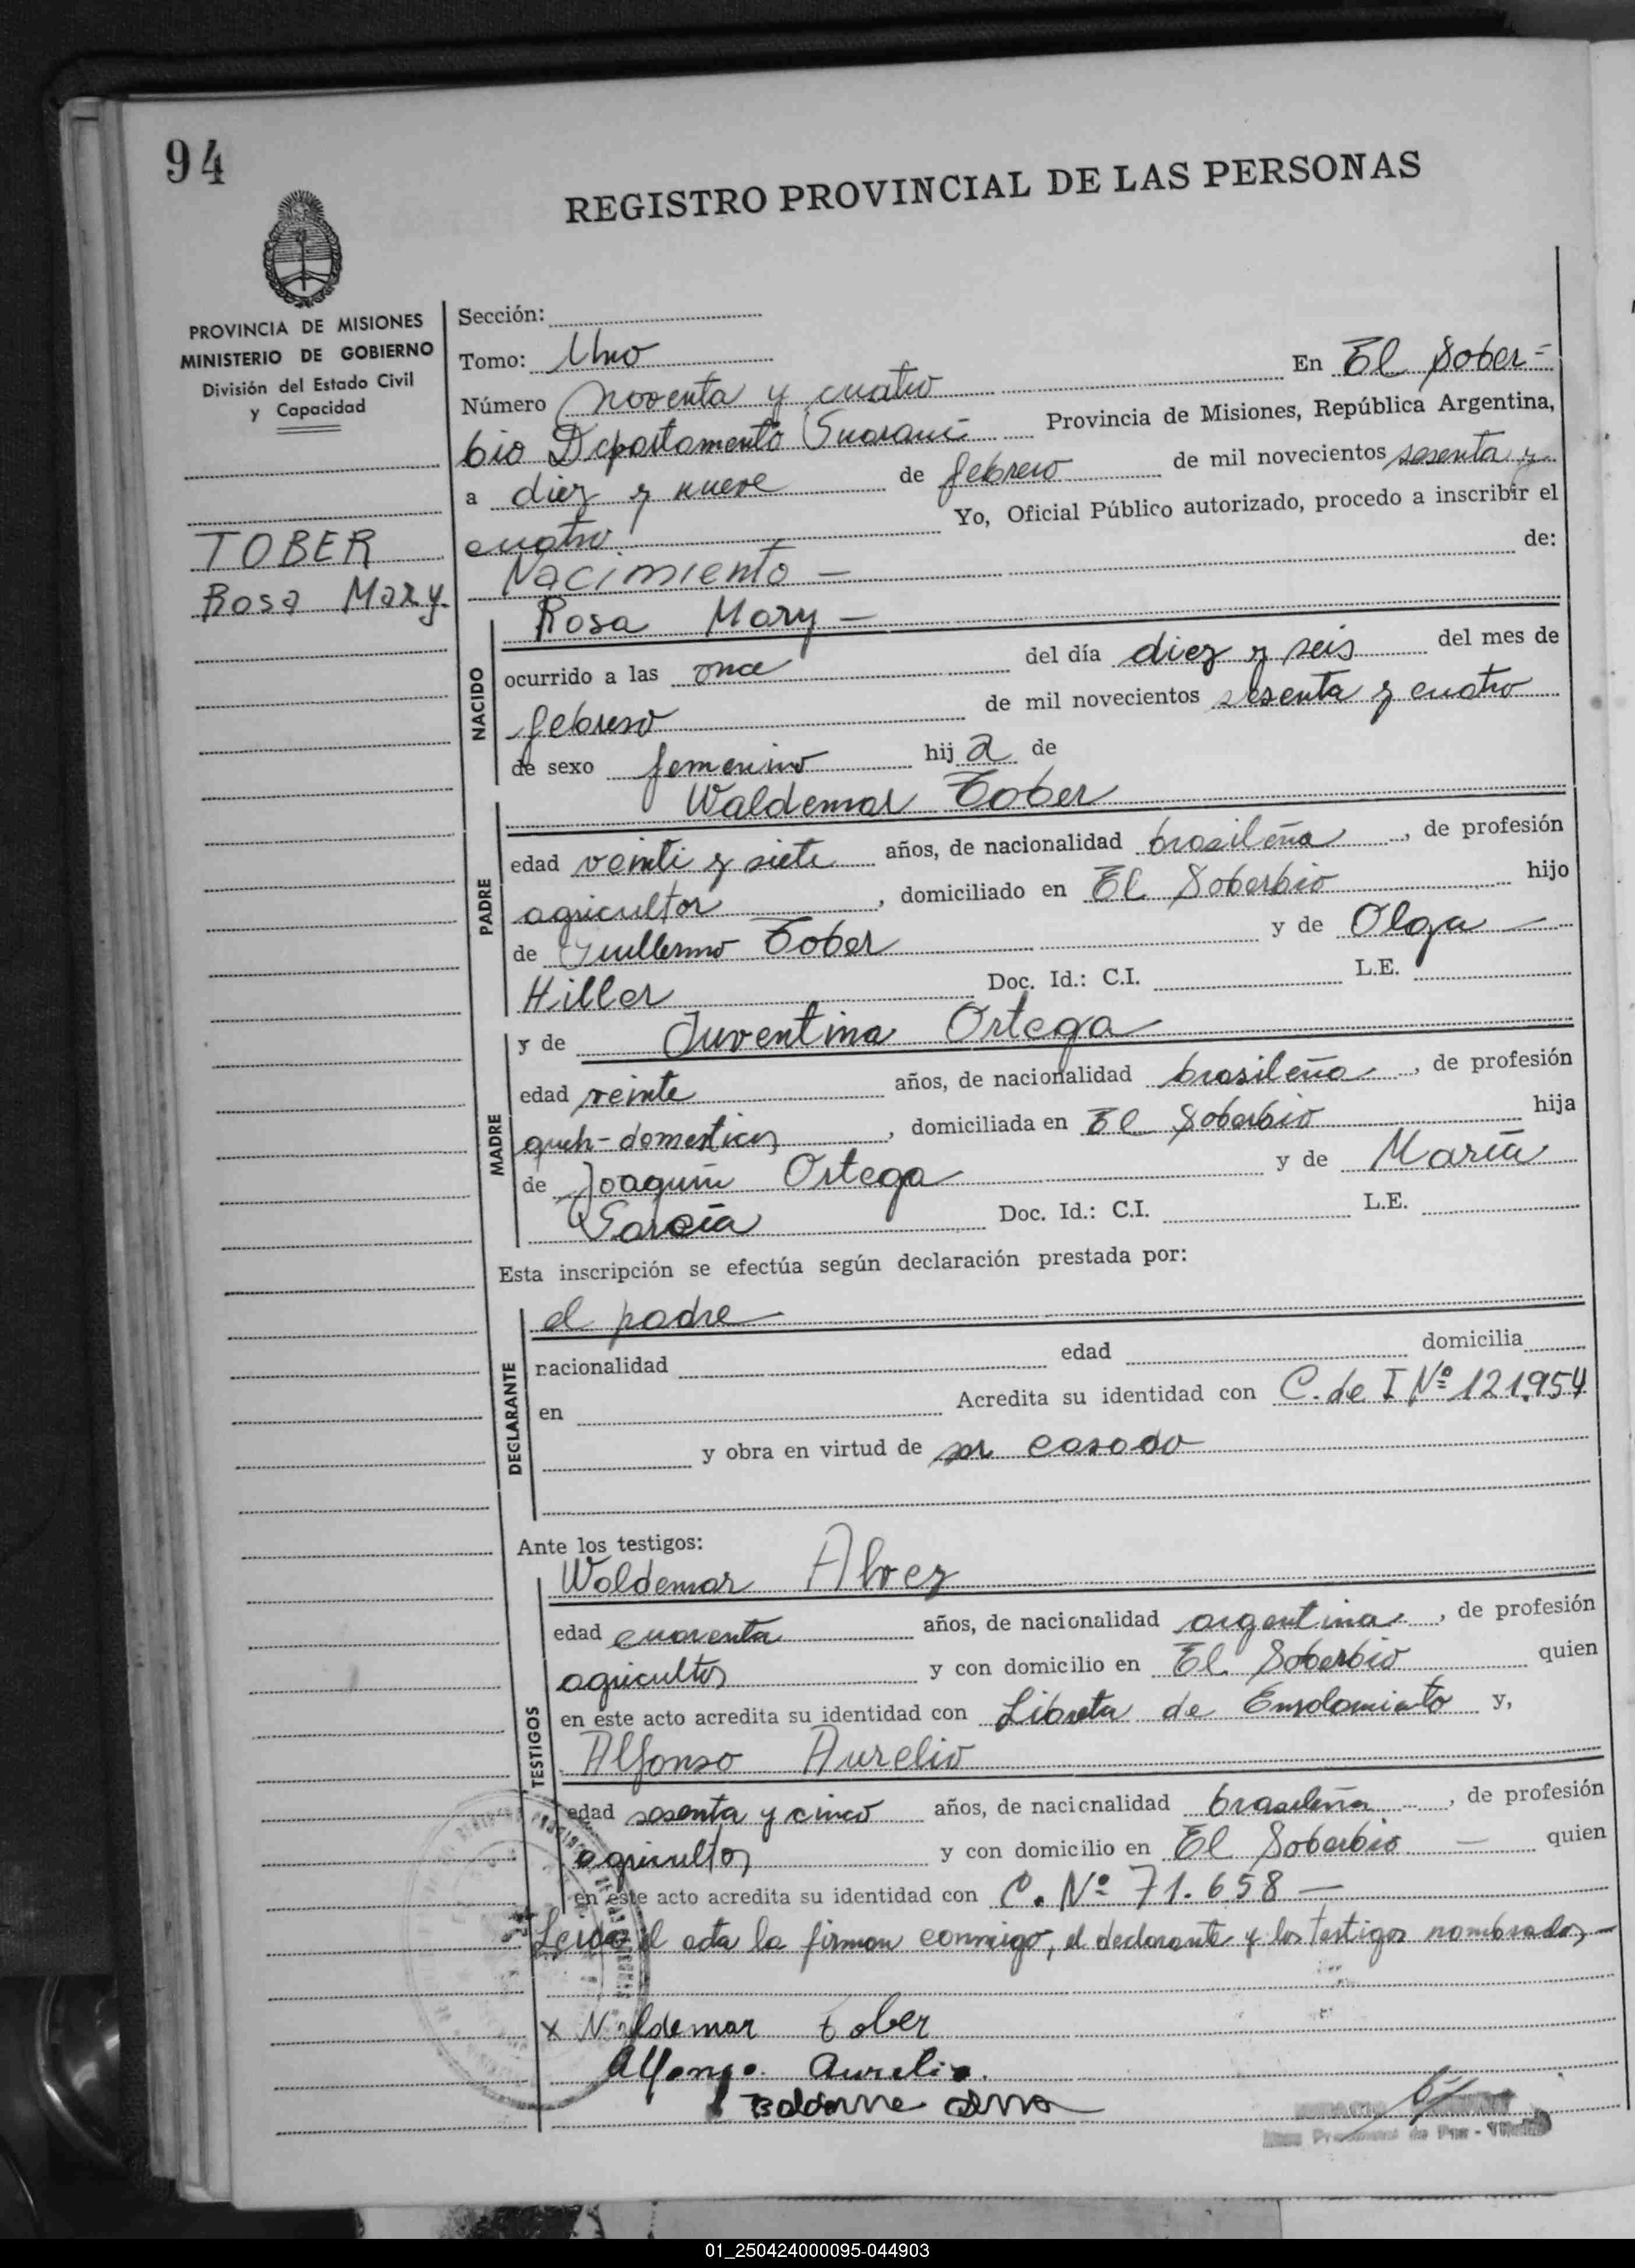 94
REGISTRO PROVINCIAL DE LAS PERSONAS
PROVINCIA DE MISIONES
MINISTERIO DE GOBIERNO
División del Estado Civil
y Capacidad
TOBER
Rosa Mary.
Sección:
Tomo: Uno
Número noventa y cuatro En El Sober=
bio Departamento Guaraní Provincia de Misiones, República Argentina,
a diez y nueve de febrero de mil novecientos sesenta y
cuatro Yo, Oficial Público autorizado, procedo a inscribir el
Nacimiento — de:
NACIDO
Rosa Mary —
ocurrido a las once del día diez y seis del mes de
febrero de mil novecientos sesenta y cuatro
de sexo femenino hija de
PADRE
Waldemar Tober
edad veinti y siete años, de nacionalidad brasileña, de profesión
agricultor, domiciliado en El Soberbio hijo
de Guillermo Tober y de Olga —
Hiller Doc. Id.: C.I. L.E.
MADRE
y de Juventina Ortega
edad veinte años, de nacionalidad brasileña, de profesión
queh-domesticos, domiciliada en El Soberbio hija
de Joaquín Ortega y de María
García Doc. Id.: C.I. L.E.
Esta inscripción se efectúa según declaración prestada por:
DECLARANTE
el padre
nacionalidad edad domicilia
en Acredita su identidad con C. de I Nº 121.954
y obra en virtud de ser casado
Ante los testigos:
TESTIGOS
Waldemar Alvez
edad cuarenta años, de nacionalidad argentina, de profesión
agricultor y con domicilio en El Soberbio quien
en este acto acredita su identidad con Libreta de Enrolamiento y,
Alfonso Aurelio
edad sesenta y cinco años, de nacionalidad brasileña, de profesión
agricultor y con domicilio en El Soberbio — quien
en este acto acredita su identidad con C. Nº 71.658 —
Leida el acta la firman conmigo, el declarante y los testigos nombrados —
x Waldemar Tober
Alfonso Aurelio.
01_250424000095-044903